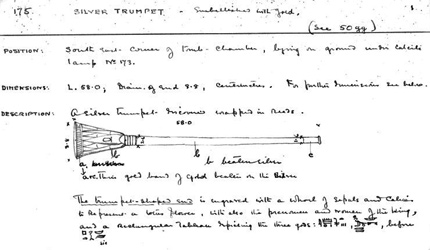 175. SILVER TRUMPET - Embellished with gold.
(See 50gg)
POSITION: South East Corner of Tomb-Chamber, lying on ground under Calcite
lamp No 173.
DIMENSIONS: L. 58.0, Diam. of end 8.8, Centimetres. For further dimensions see below.
DESCRIPTION: A silver trumpet discovered wrapped in reeds.
58.0
b
b beaten silver
a. are thin gold band of gold beaten on the silver
The trumpet-shaped end is engraved with a whorl of sepals and Calices
to represent a lotus flower, with also the prenomen and nomen of the king,
and a rectangular Tableau depicting the three gods: before